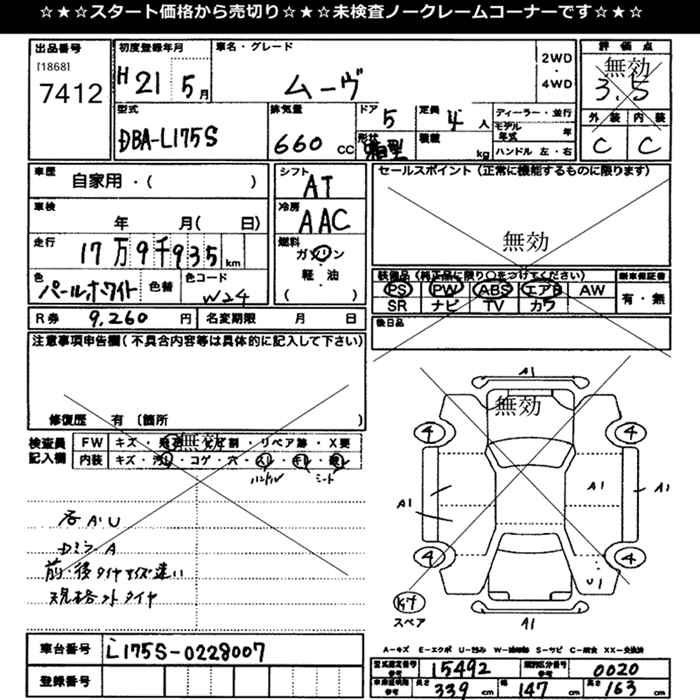 ☆★☆スタート価格から売切り☆★☆未検査ノークレームコーナーです☆★☆
出品番号
[1868]
7412
初度登録年月
H 21 5月
車名・グレード
ムーヴ
2WD
・
4WD
評価点
無効
3.5
外装 内装
C C
型式
DBA-L175S
排気量
660 CC
ドア
5
形状
箱型
定員
4 人
積載
kg
ディーラー・並行
モデル年式 年
ハンドル 左・右
車歴
自家用・( )
車検
年 月( 日)
走行
17万9千935km
色
パールホワイト
色替
色コード
W24
シフト
AT
冷房
AAC
燃料
ガソリン
軽・油
( )
セールスポイント(正常に機能するものに限ります)
無効
装備品(純正品に限り○をつけてください)
PS PW ABS エアB AW
SR ナビ TV カワ
新車保証書
有・無
後日品
R券 9,260 円
名変期限 月 日
注意事項申告欄(不具合内容等は具体的に記入して下さい)
修復歴 有 〔箇所 〕
無効
検査員
記入欄
FW キズ・ ・リペア跡・X要
内装 キズ・汚れ・コゲ・穴・スレ・キレ・
ハンドル シート
各A.U
Dミラ-A
前・後タイヤサイズ違い
規格外タイヤ
無効
A1
4
4
A1
A1
A1
4
4
U1
A1
スペア
車台番号
L175S-0228007
登録番号
A-キズ E-エクボ U-凹み S-サビ XX-交換済
型式指定番号
参考
15492
類別区分番号
参考
0020
長さ 339 cm 幅 147 cm 高さ 163 cm